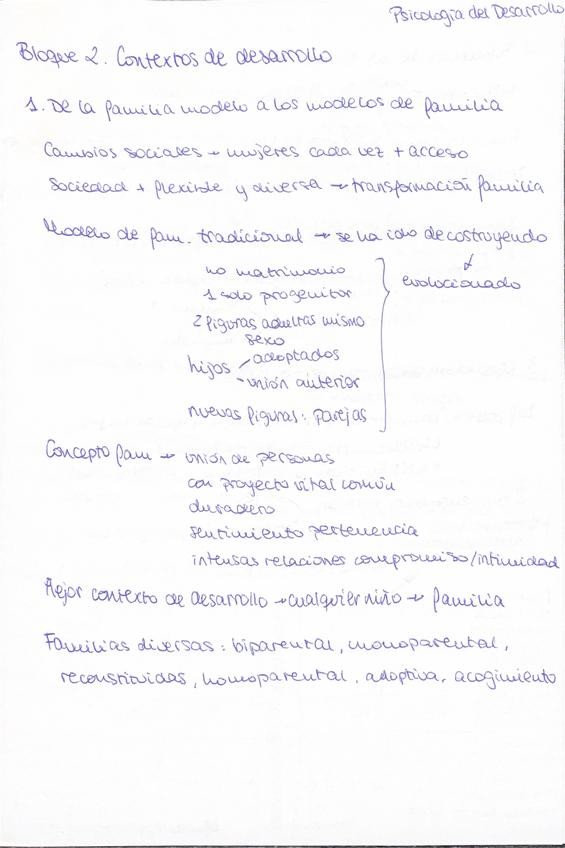 Psicología del Desarrollo
Bloque 2. Contextos de desarrollo
1. De la familia modelo a los modelos de familia
Cambios sociales → mujeres cada vez + acceso
Sociedad + flexible y diversa → transformación familia
Modelo de fam. tradicional → se ha ido decostruyendo
↓
evolucionado
no matrimonio
1 solo progenitor
2 figuras adultas mismo
sexo
hijos - adoptados
- unión anterior
nuevas figuras: parejas
Concepto fam → unión de personas
con proyecto vital común
duradero
sentimiento pertenencia
intensas relaciones compromiso/intimidad
Mejor contexto de desarrollo → cualquier niño → familia
Familias diversas: biparental, monoparental,
reconstituidas, homoparental, adoptiva, acogimiento